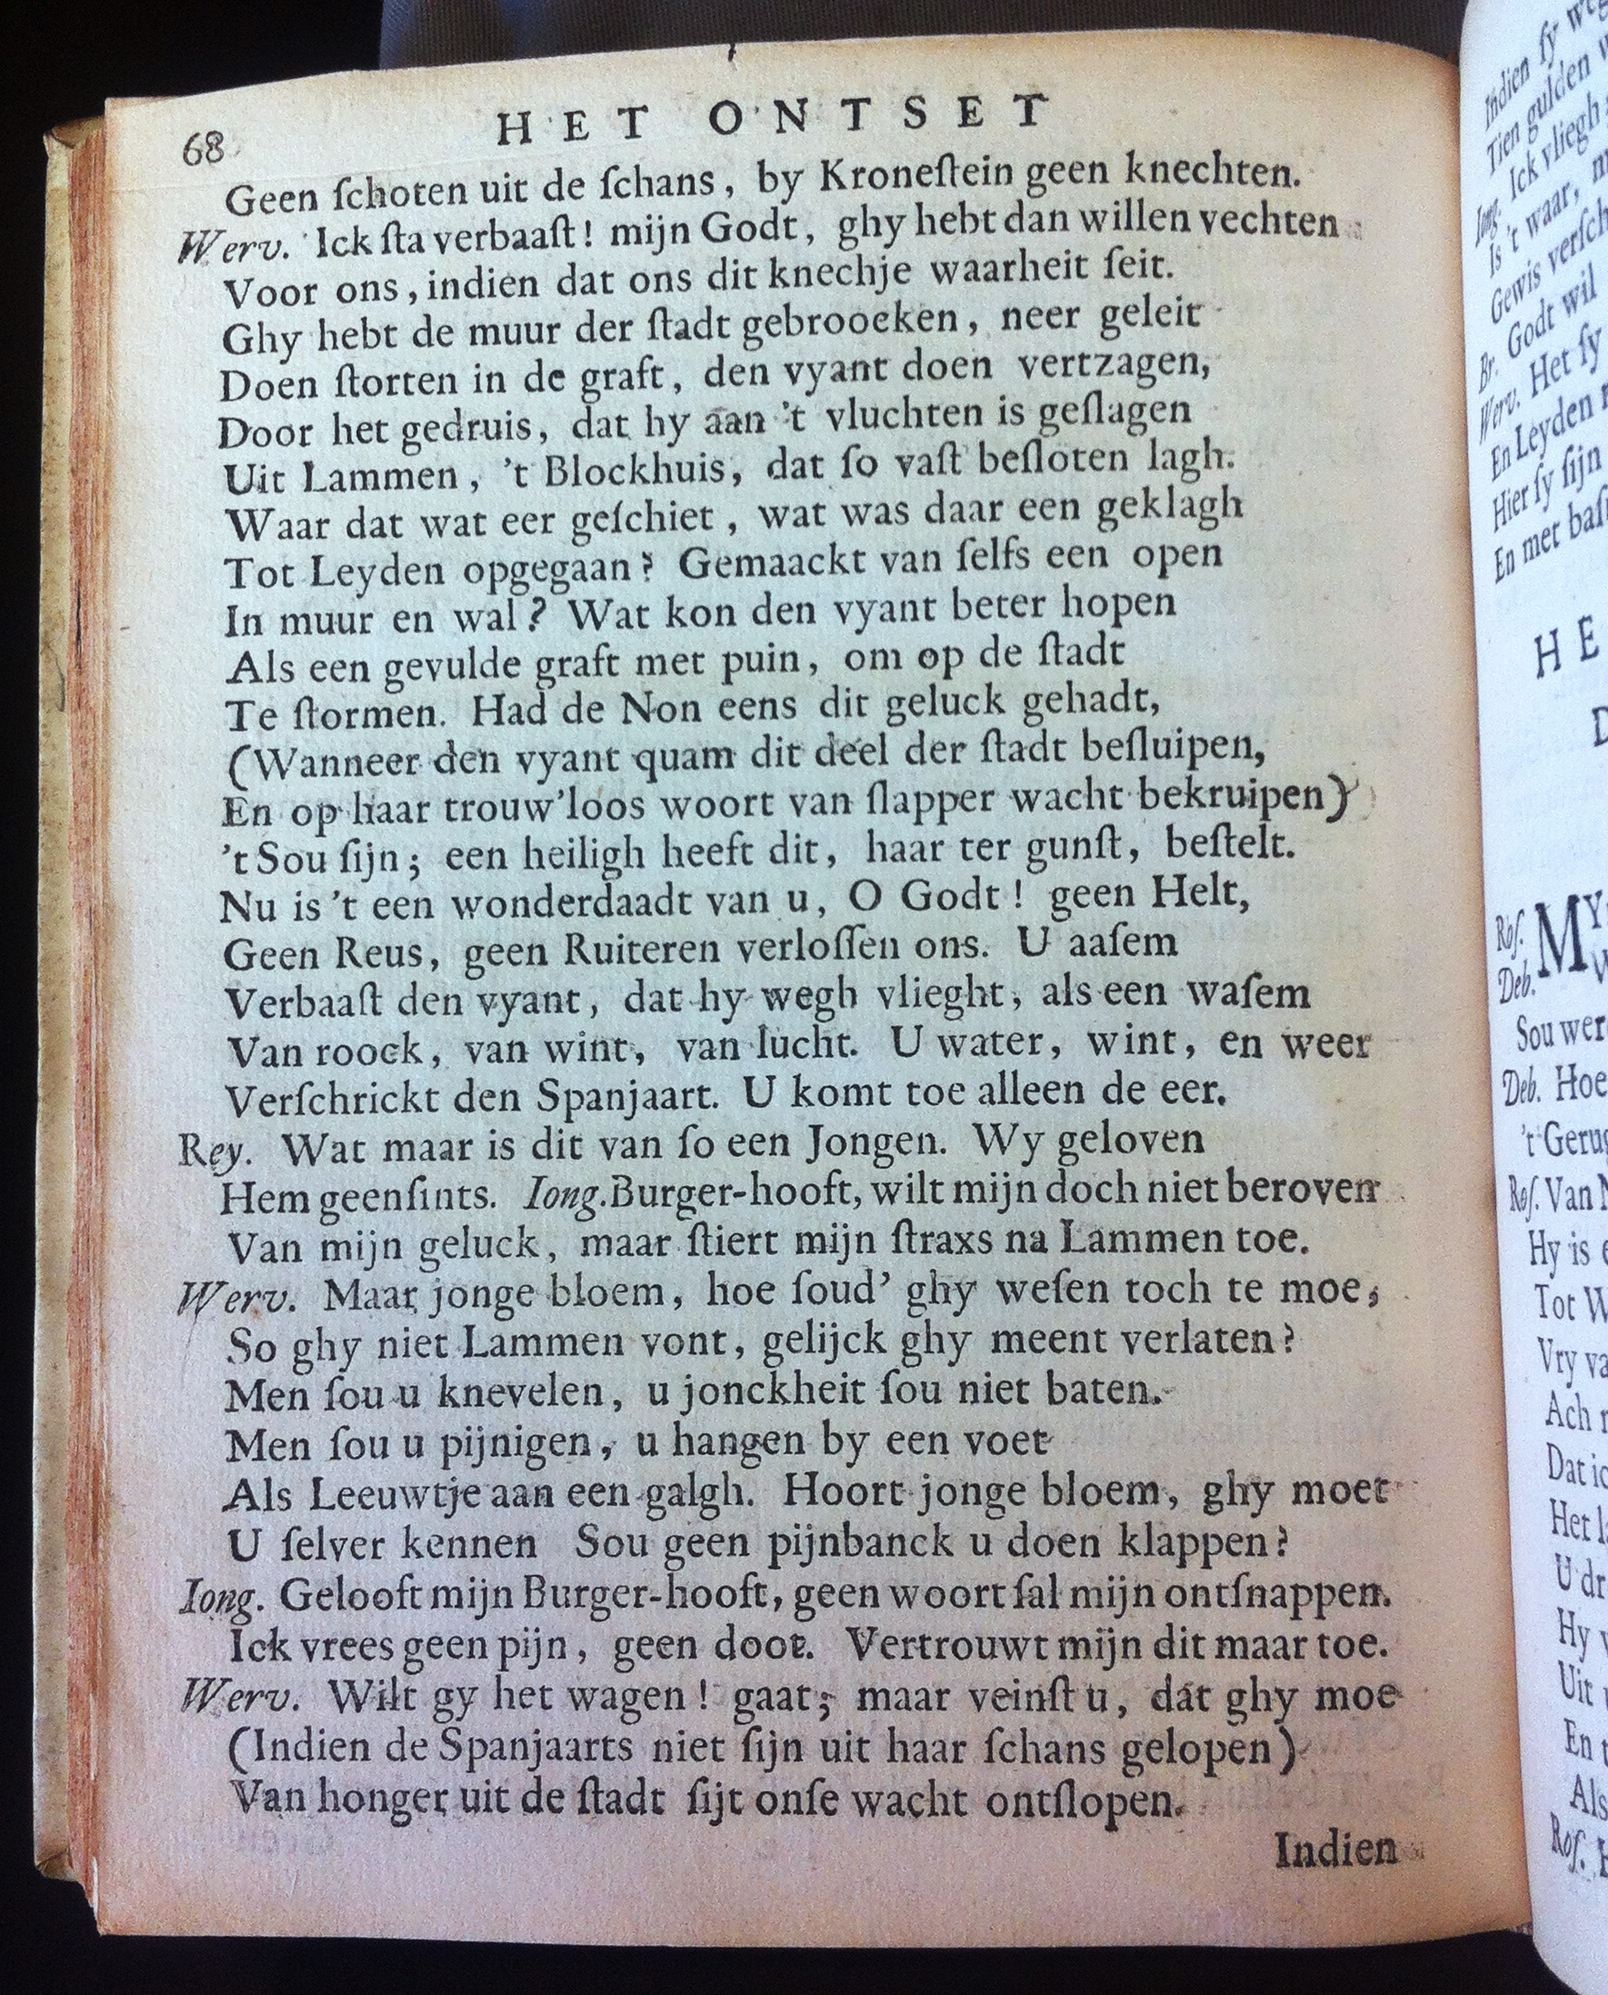 68
HET ONTSET
Geen ſchoten uit de ſchans, by Kroneſtein geen knechten.
Werv. Ick ſta verbaaſt! mijn Godt, ghy hebt dan willen vechten
Voor ons, indien dat ons dit knechje waarheit ſeit.
Ghy hebt de muur der ſtadt gebrooeken, neer geleit
Doen ſtorten in de graft, den vyant doen vertzagen,
Door het gedruis, dat hy aan 't vluchten is geſlagen
Uit Lammen, 't Blockhuis, dat ſo vaſt beſloten lagh.
Waar dat wat eer geſchiet, wat was daar een geklagh
Tot Leyden opgegaan? Gemaackt van ſelfs een open
In muur en wal? Wat kon den vyant beter hopen
Als een gevulde graft met puin, om op de ſtadt
Te ſtormen. Had de Non eens dit geluck gehadt,
(Wanneer den vyant quam dit deel der ſtadt beſluipen,
En op haar trouw'loos woort van ſlapper wacht bekruipen)
't Sou ſijn; een heiligh heeft dit, haar ter gunſt, beſtelt.
Nu is 't een wonderdaadt van u, O Godt! geen Helt,
Geen Reus, geen Ruiteren verloſſen ons. U aaſem
Verbaaſt den vyant, dat hy wegh vlieght, als een waſem
Van roock, van wint, van lucht. U water, wint, en weer
Verſchrickt den Spanjaart. U komt toe alleen de eer.
Rey. Wat maar is dit van ſo een Jongen. Wy geloven
Hem geenſints. Iong. Burger-hooft, wilt mijn doch niet beroven
Van mijn geluck, maar ſtiert mijn ſtraxs na Lammen toe.
Werv. Maar jonge bloem, hoe ſoud' ghy weſen toch te moe,
So ghy niet Lammen vont, gelijck ghy meent verlaten?
Men ſou u knevelen, u jonckheit ſou niet baten.
Men ſou u pijnigen, u hangen by een voet
Als Leeuwtje aan een galgh. Hoort jonge bloem, ghy moet
U ſelver kennen Sou geen pijnbanck u doen klappen?
Iong. Gelooft mijn Burger-hooft, geen woort ſal mijn ontſnappen.
Ick vrees geen pijn, geen doot. Vertrouwt mijn dit maar toe.
Werv. Wilt gy het wagen! gaat; maar veinſt u, dat ghy moe
(Indien de Spanjaarts niet ſijn uit haar ſchans gelopen)
Van honger uit de ſtadt ſijt onſe wacht ontſlopen.
Indien
Indien ſy weg
Tien gulden
Iong. Ick vliegh
Is 't waar,
Gewis verſch
Br. Godt wil
Werv. Het ſy
En Leyden
Hier ſy ſijn
En met baſ
HE
D
Roſ. MY
Deb. W
Sou wer
Deb. Hoe
't Gerug
Roſ. Van
Hy is
Tot W
Vry va
Ach
Dat ic
Het l
U dr
Hy
Uit
En
Als
Roſ.